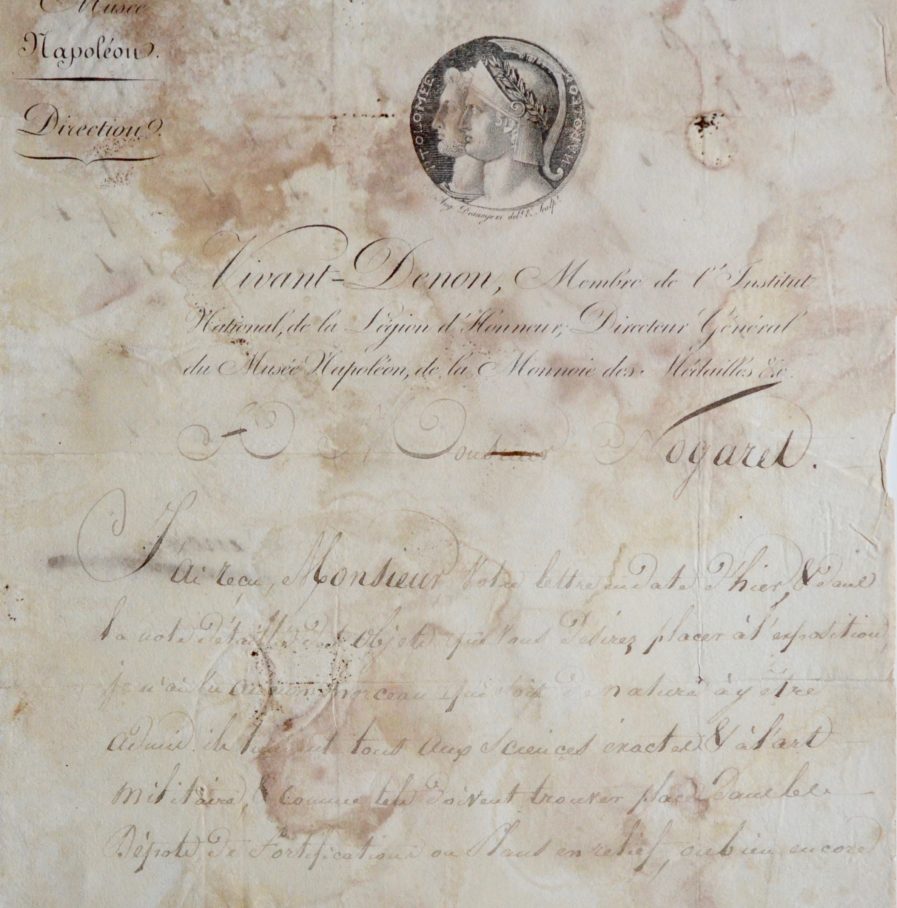 Musée
Napoléon.
Direction.
PTOLOMÉE
Aug. Desnoyers del. & Sculp.
Vivant-Denon, Membre de l'Institut
National, de la Légion d'Honneur, Directeur Général
du Musée Napoléon, de la Monnoie des Médailles &c.
A Nogaret.
J'ai reçu, Monsieur, votre lettre en date d'hier, & dans
la note détaillée des objets que vous désirez placer à l'exposition,
je n'ai lu aucun morceau qui soit de nature à y être
admis. ils tous aux sciences exactes & à l'art
militaire, & comme tels doivent trouver place dans les
Dépots de Fortifications ou Plans en relief, ou bien encore